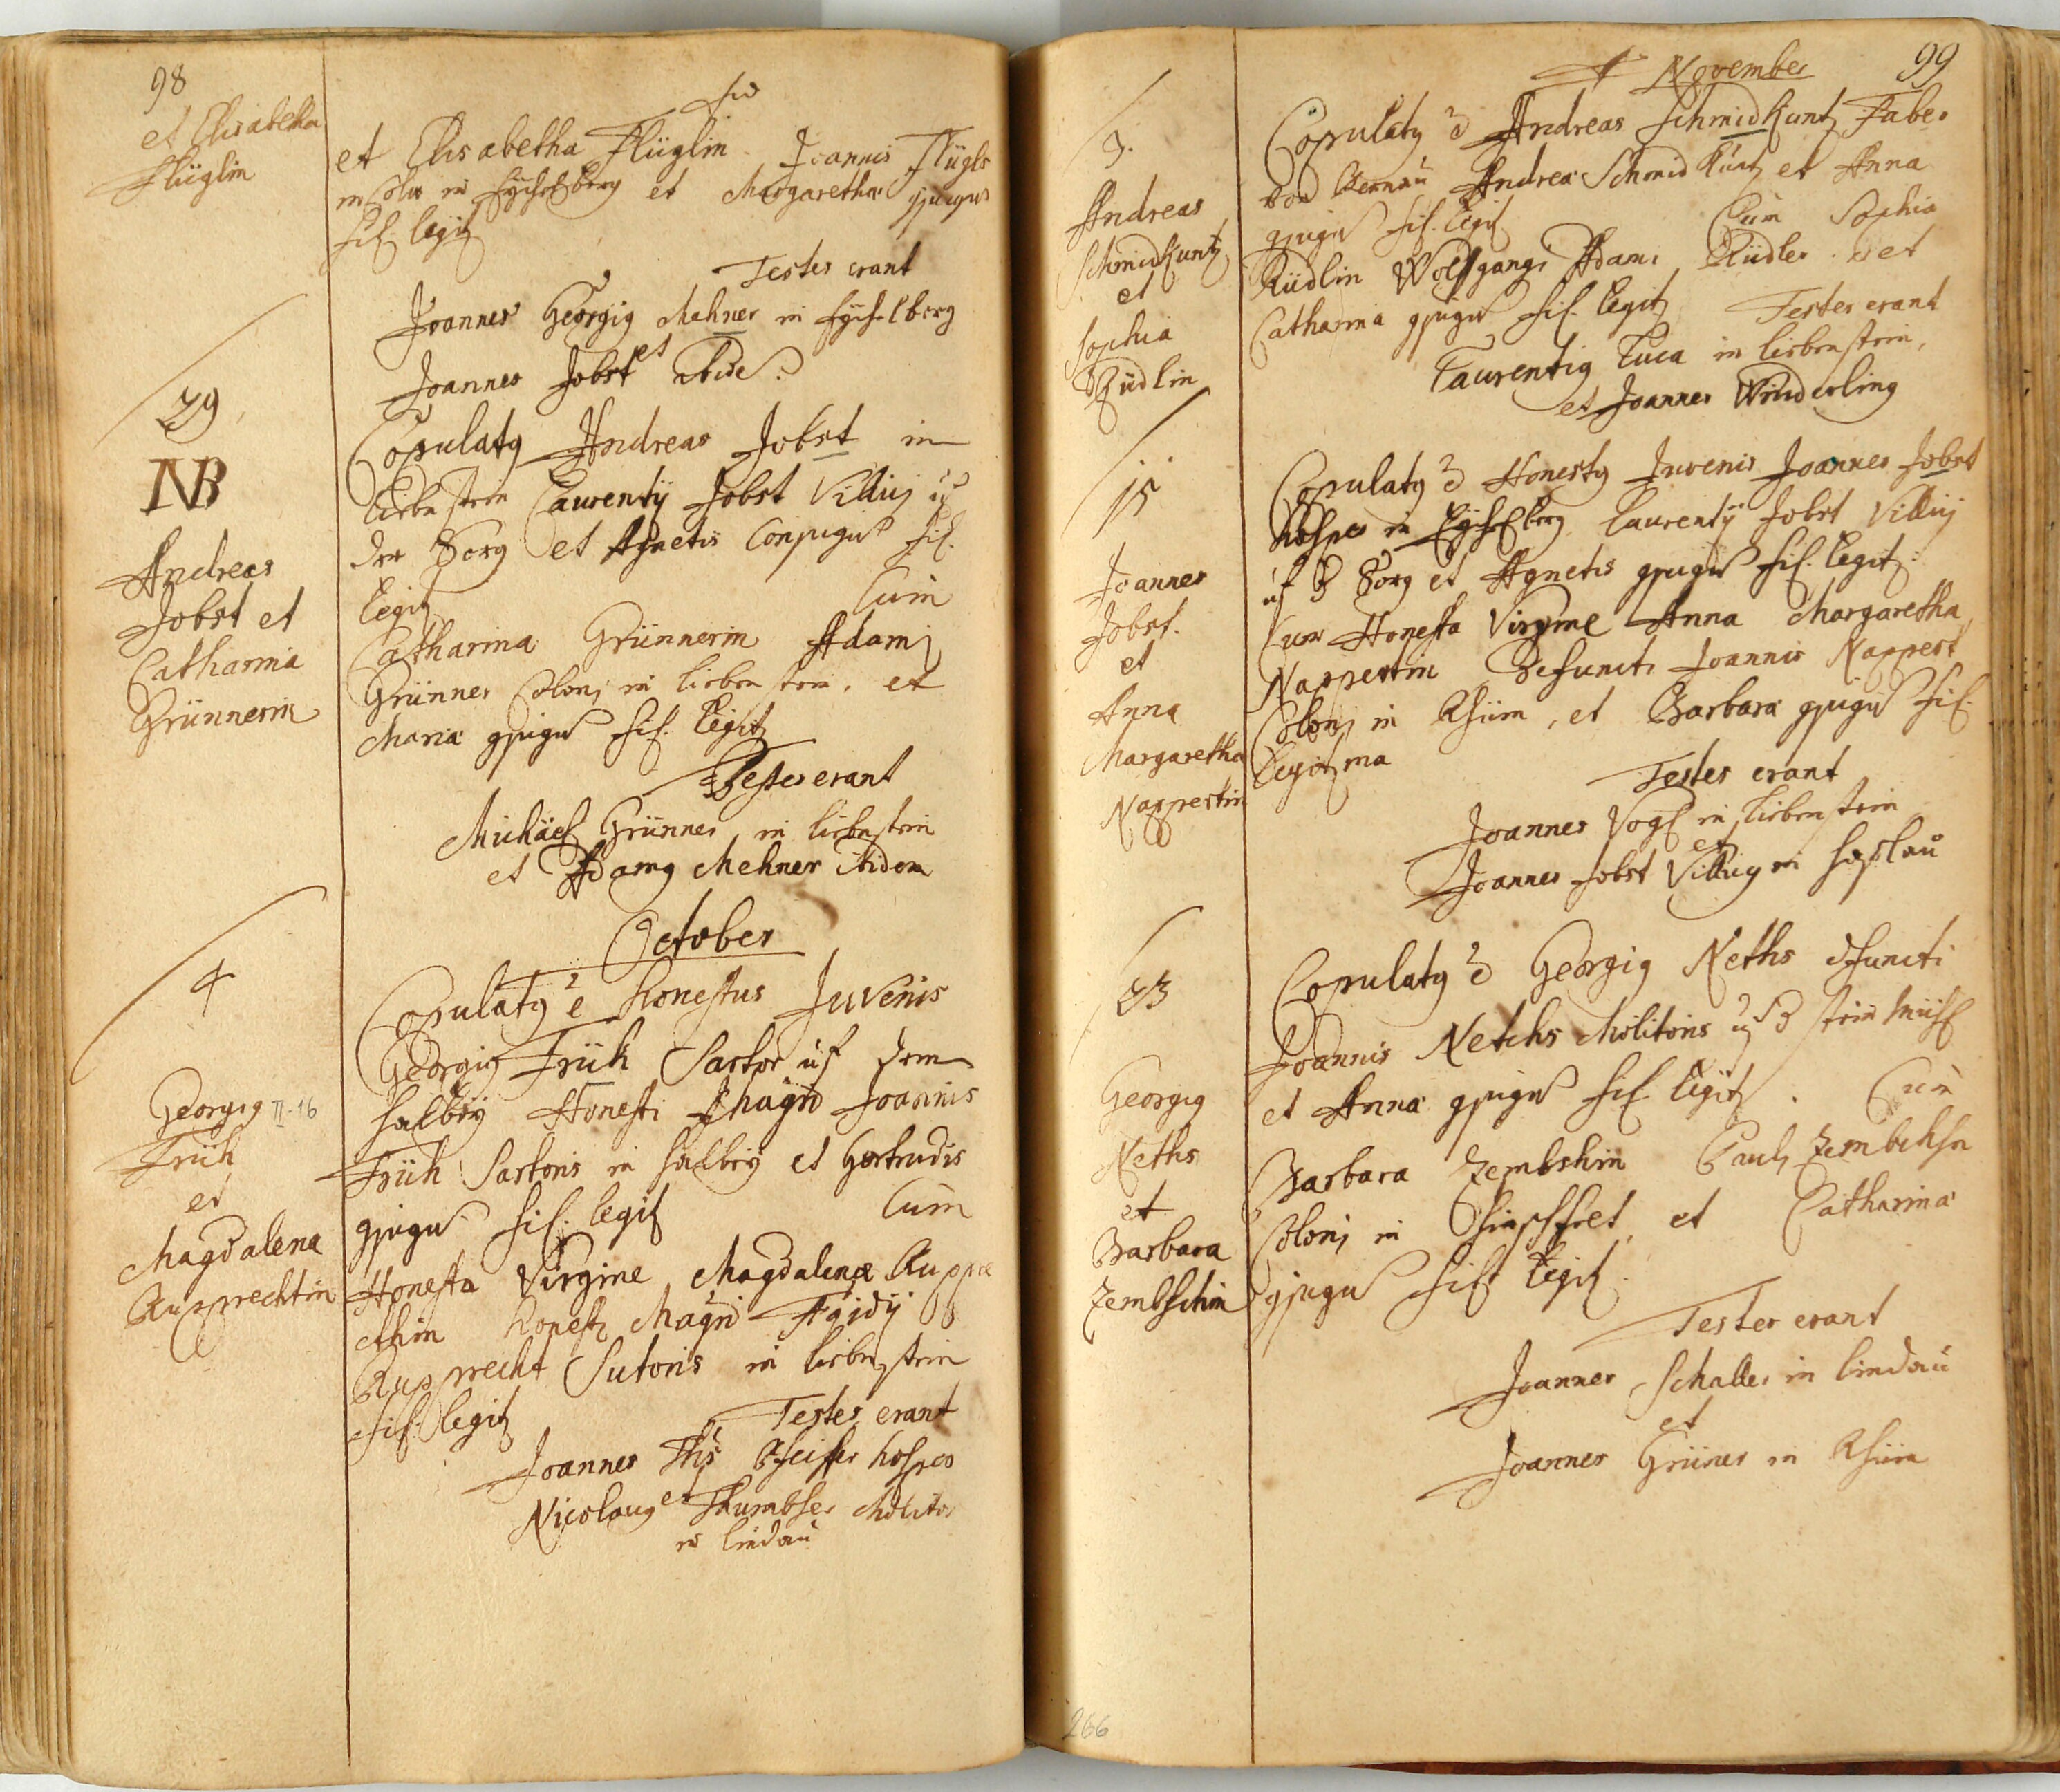 98
et Elisabetha
Flüglin
et Elisabetha Flüglin Joannis Flügls
in Eÿchelberg et Margarethæ gjugis
fil. legit
Testes erant
Joannes Georgig Mehner in Eÿchelberg
et
Joannes Jobst ibide:
29
NB
Andreas
Jobst et
Catharina
Grünnerin
Copulatg Andreas Jobst in
liebenstein Laurentij Jobst Villici uf
der Sorg et Agnetis Conjugis fil.
legit Cum
Catharina Grünnerin Adamj
Grünner Colonj in liebenstein, et
Maria gjugis fil. legit
Testes erant
Michäel Grünner in liebenstein
et Adamg Mehner ibidem
October
4
Georgig II-16
Früh
et
Magdalena
Rupprechtin
Copulatg ē honestus Juvenis
Georgig Früh Sartor uf dem
Honesti Joannis
Früh Sartoris in et Gertrudis
gjugis fil. legit Cum
Honesta Virgine Magdalena Ruppr
chtin honesti Ägidÿ
Rupprecht Sutoris in liebenstein
fil. legit
Testes erant
Joannes Pfeiffer hospes
et
Nicolaug Thumbser Molitor
in lindau
November 99
3.
Andreas
Schmidkuntz
et
Sophia
Rüdlin
Copulatg ē Andreas Schmidkuntz Faber
von Bernau Andreæ Schmidkuntz et Anna
gjugis fil. legit Cum Sophia
Rüdlin Wolfgangi Adami Rüdler et
Catharina gjugis fil. legit Testes erant
Laurentig Luca in liebenstein,
et Joannes Winderling
15
Joannes
Jobst.
et
Anna
Margaretha
Nappertin
Copulatg ē Honestg Juvenis Joannes Jobst
hospes in Eÿchelberg Laurentij Jobst Villicj
uf d Sorg et Agnetis gjugis fil. legit:
Cum Honesta Virgine Anna Margaretha
Nappertin Defuncti Joannis Nappert
Colonj in , et Barbara gjugis fil.
legitima
Testes erant
Joannes Vogl in liebenstein
et
Joannes Jobst Villicg in Haslau
23
Georgig
Neths
et
Barbara
Zembschin
Copulatg ē Georgig Neths defuncti
Joannis Netchs Molitoris uf d steinmühl
et Anna gjugis fil. legit. Cum
Barbara Zembshin Pauli
Colonj in et Catharina
gjugis fil. legit.
Testes erant
Joannes Schaller in lindau
et
Joannes Grüner in
266